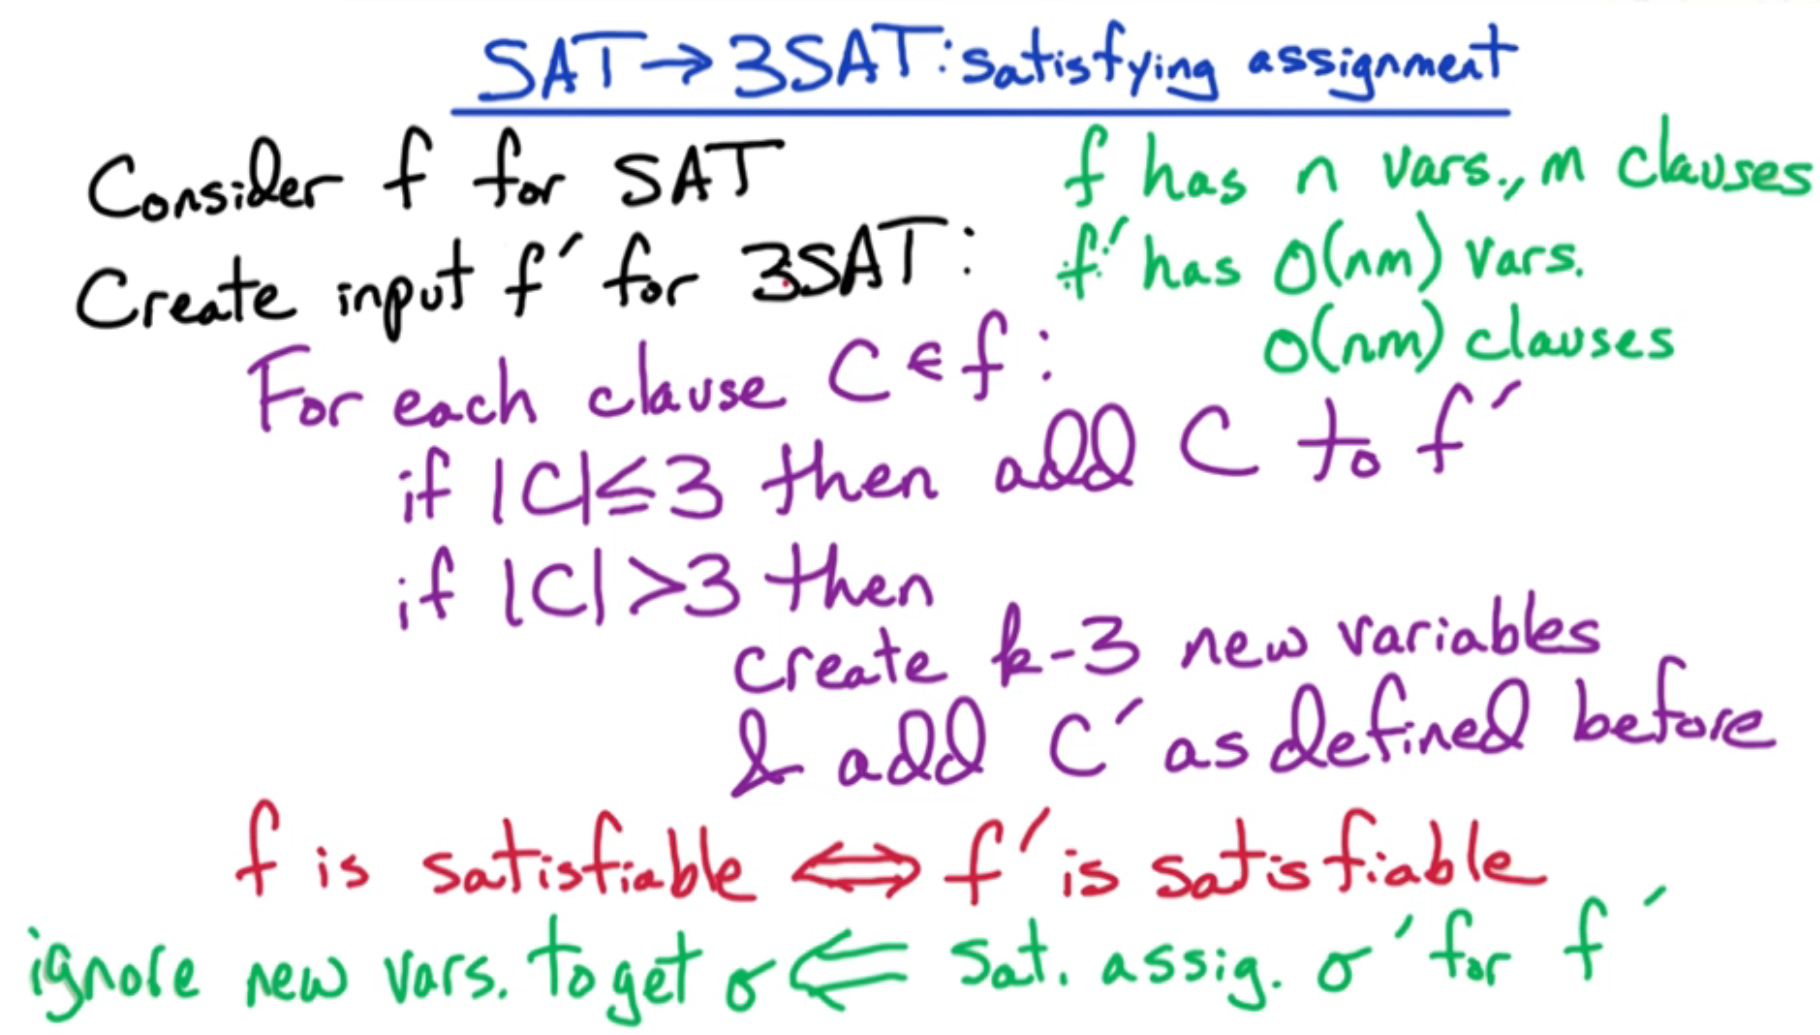 SAT→3SAT: satisfying assignment
Consider f for SAT
f has n vars., m clauses
Create input f′ for 3SAT:
f′ has O(nm) vars.
O(nm) clauses
For each clause C ∈ f:
if |C| ≤ 3 then add C to f′
if |C| > 3 then
create k-3 new variables
& add C′ as defined before
f is satisfiable ⟺ f′ is satisfiable
ignore new vars. to get σ ⟸ sat. assig. σ′ for f′